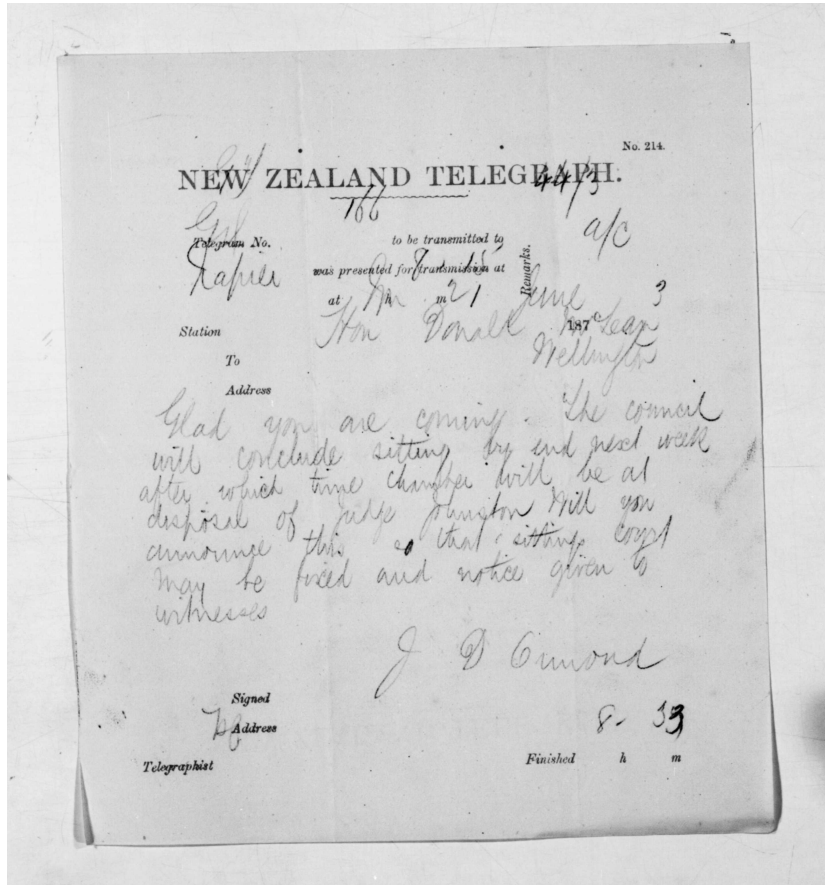 No. 214.
NEW ZEALAND TELEGRAPH.
44/3
166
Telegram No. to be transmitted to
a/c
Napier was presented for transmission at
Remarks.
at h m 21 June 3
Station Hon Donald McLean 187
To Wellington
Address
Glad you are coming. The council
will conclude sitting by end next week
after which time chamber will be at
disposal of judge Johnston Will you
announce this so that sittings court
may be fixed and notice given to
witnesses
J D Ormond
Signed
Address 8 - 33
Telegraphist Finished h m